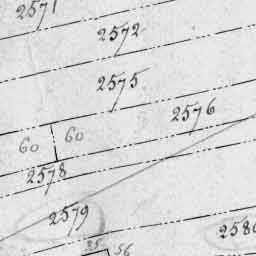 2571
2572
2575
2576
60 60
2578
2579
258
25 56